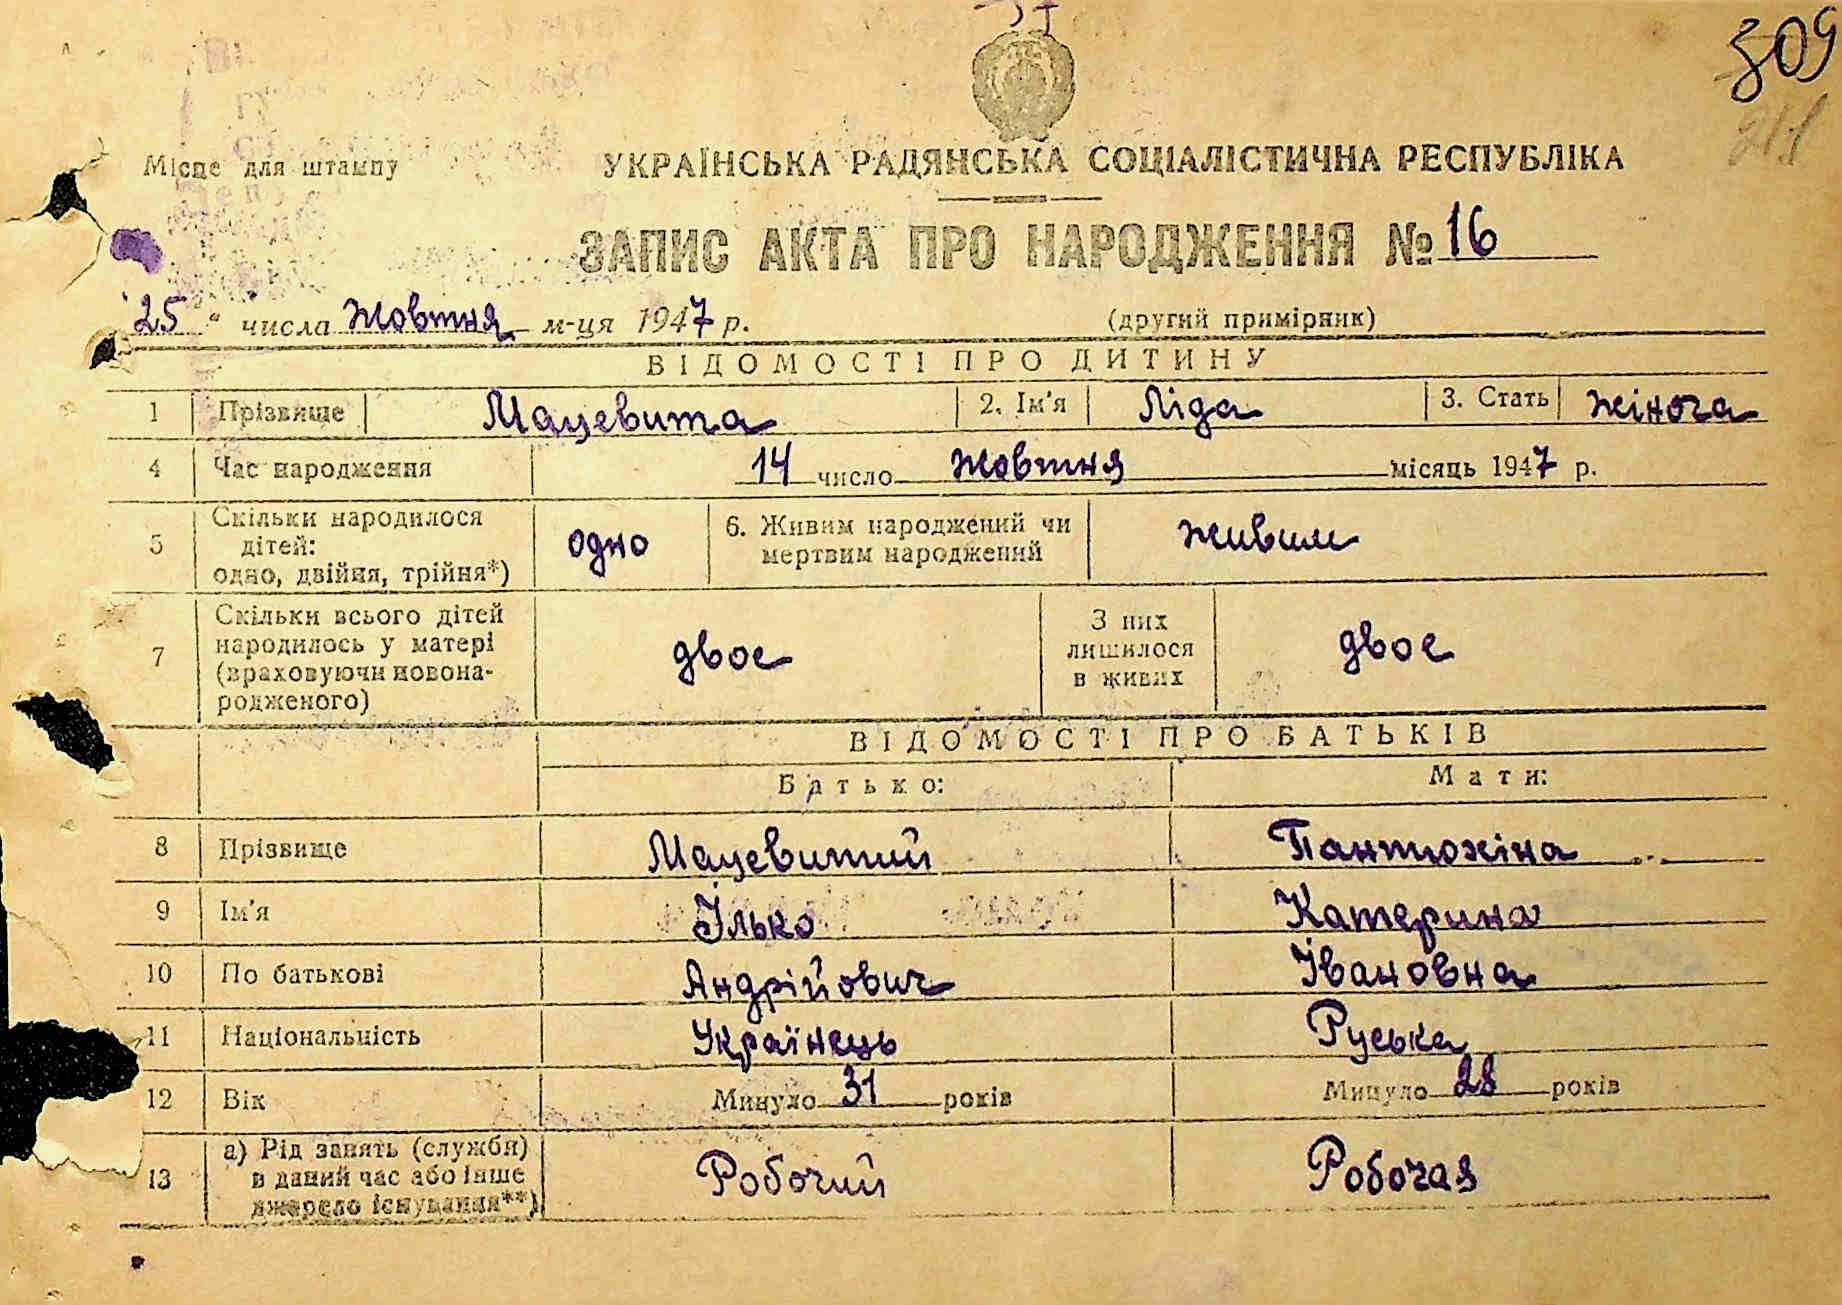 309
211
Місце для штампу
УКРАЇНСЬКА РАДЯНСЬКА СОЦІАЛІСТИЧНА РЕСПУБЛІКА
ЗАПИС АКТА ПРО НАРОДЖЕННЯ № 16
"25" числа Жовтня м-ця 1947 р. (другий примірник)
ВІДОМОСТІ ПРО ДИТИНУ
1 Прізвище Мацевита 2. Ім'я Ліда 3. Стать жіноча
4 Час народження 14 число Жовтня місяць 1947 р.
5 Скільки народилося дітей: одно, двійня, трійня*) одно 6. Живим народжений чи мертвим народжений живим
7 Скільки всього дітей народилось у матері (враховуючи новонародженого) двое З них лишилося в живих двое
ВІДОМОСТІ ПРО БАТЬКІВ
Батько: Мати:
8 Прізвище Мацевитий Пантюхіна
9 Ім'я Ілько Катерина
10 По батькові Андрійович Івановна
11 Національність Українець Руська
12 Вік Минуло 31 років Минуло 28 років
13 а) Рід занять (служби) в даний час або інше джерело існування**) Робочий Робочая